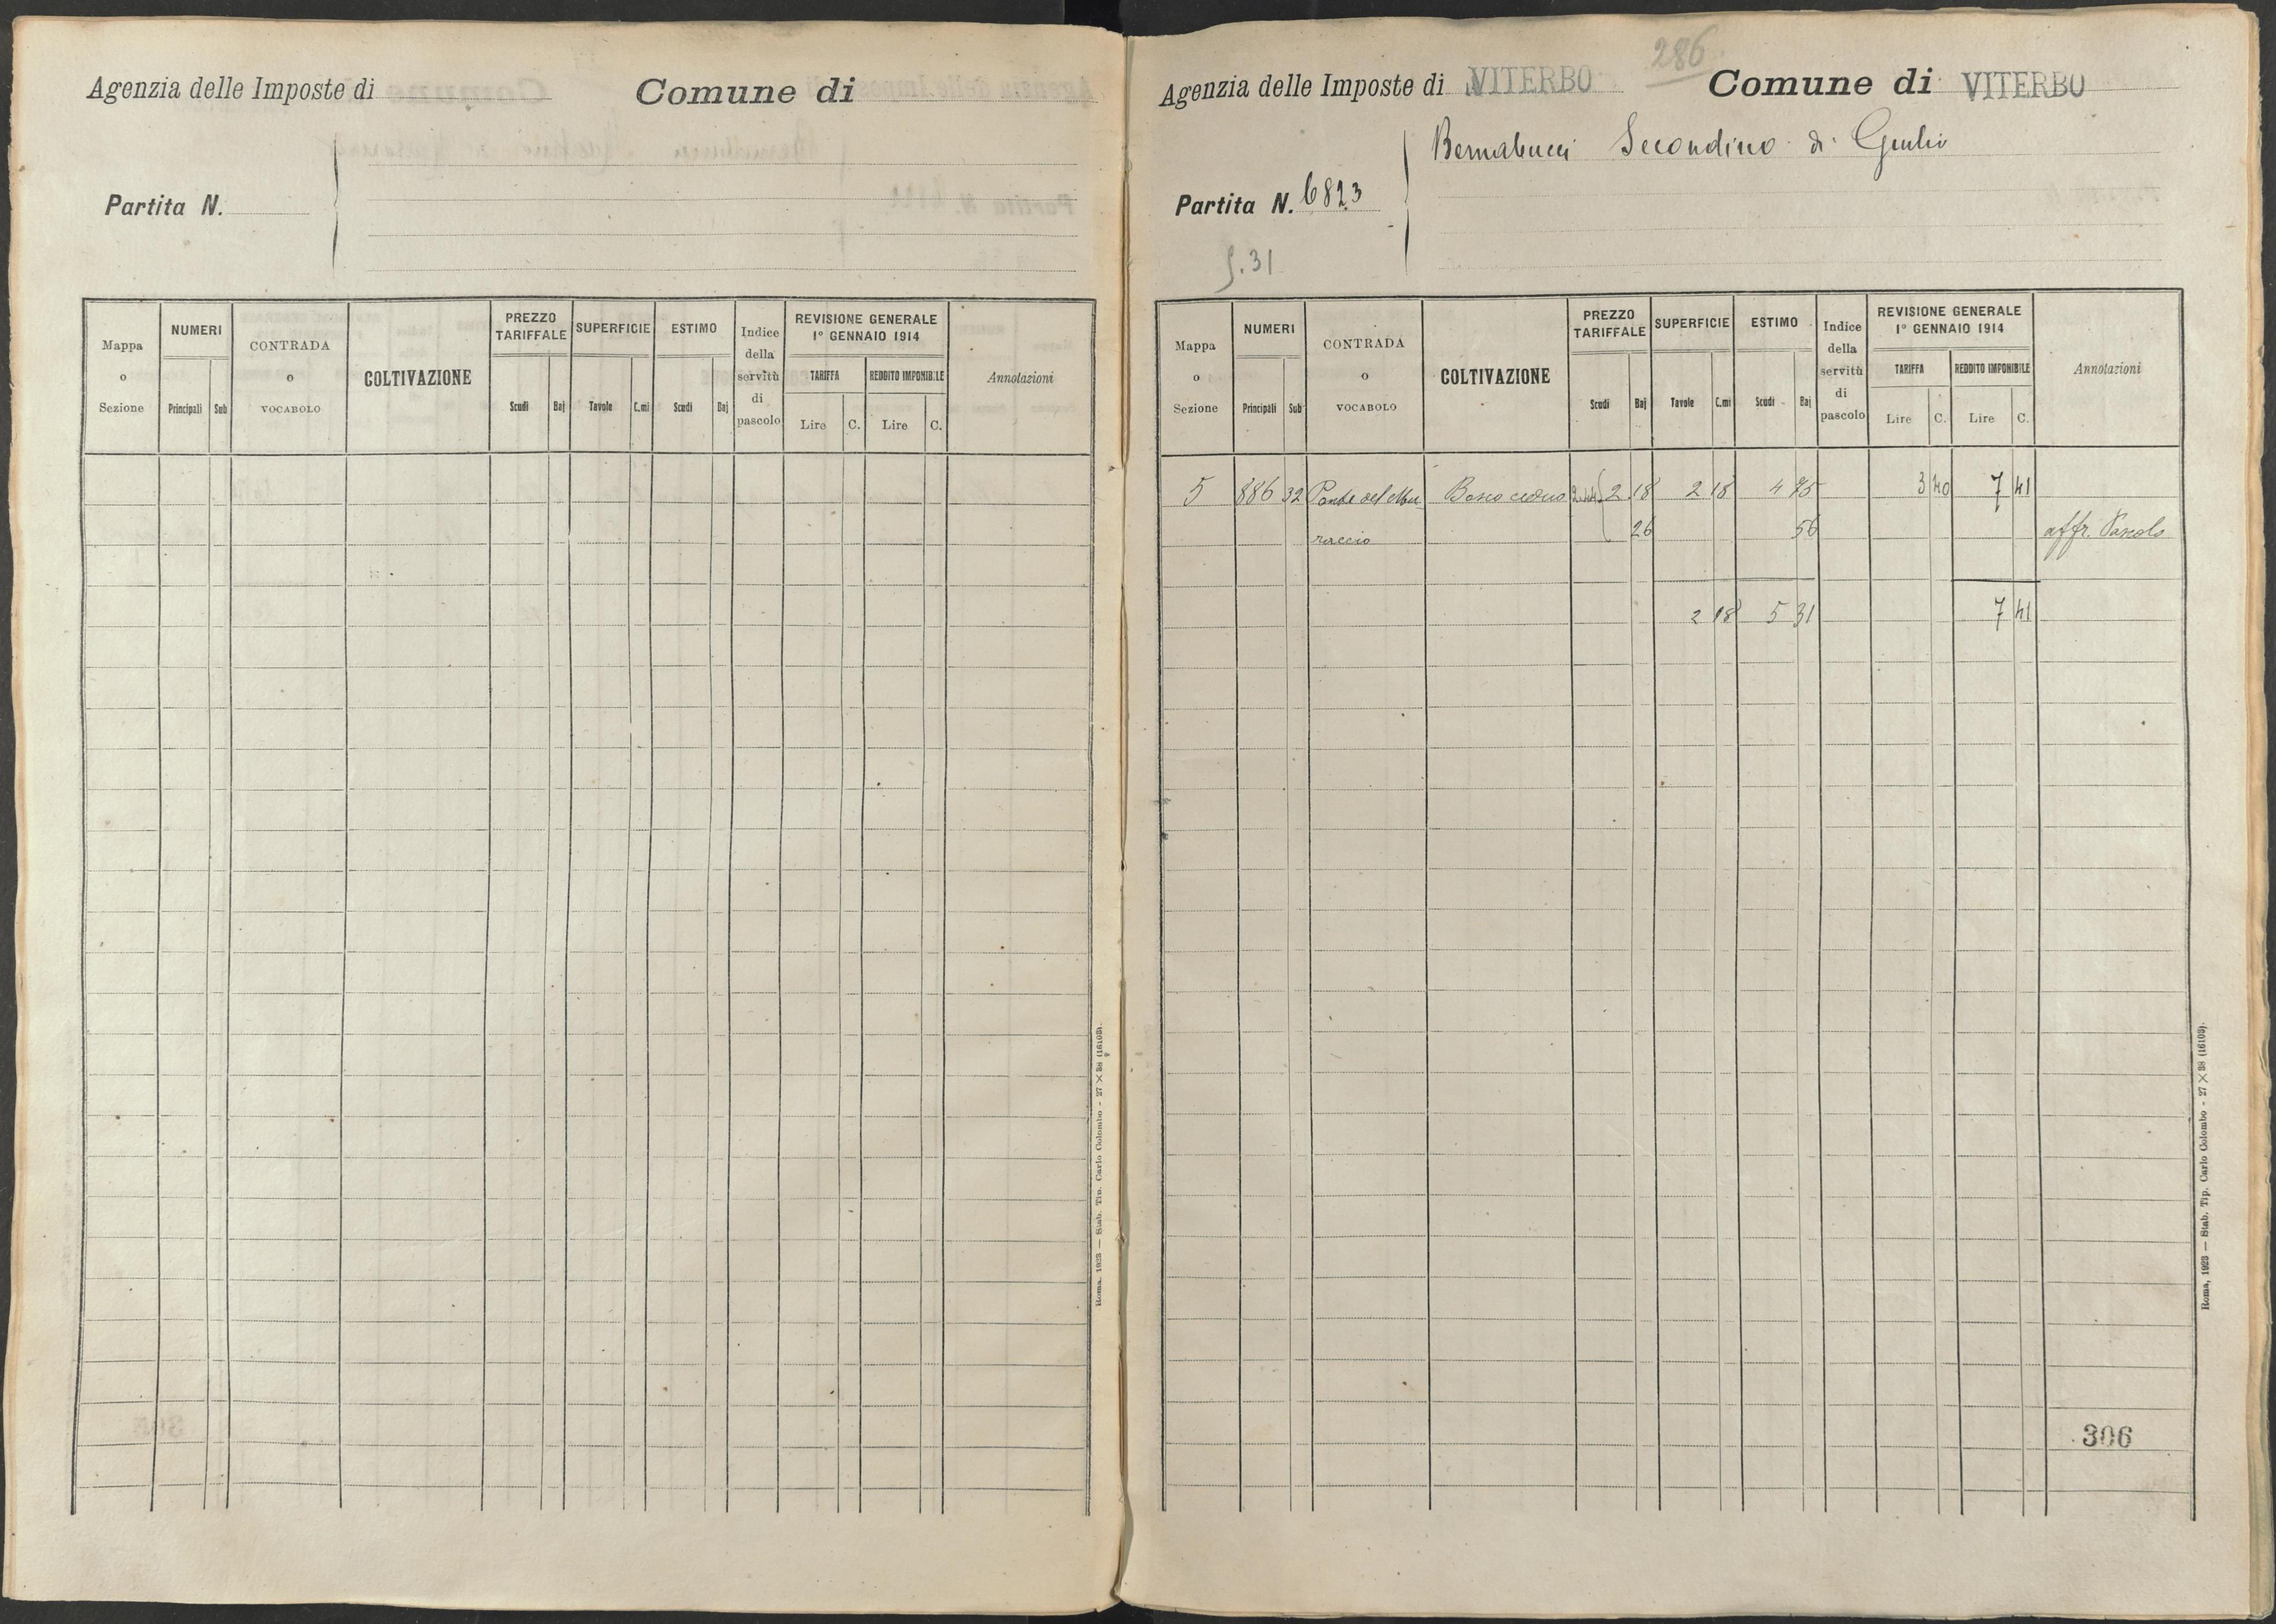 Agenzia delle Imposte di Comune di
Partita N.
Mappa o Sezione NUMERI Principali Sub CONTRADA o VOCABOLO COLTIVAZIONE PREZZO TARIFFALE Scudi Baj SUPERFICIE Tavole C.mi ESTIMO Scudi Baj Indice della servitù di pascolo REVISIONE GENERALE 1º GENNAIO 1914 TARIFFA Lire C. REDDITO IMPONIBILE Lire C. Annotazioni
Roma, 1923 — Stab. Tip. Carlo Colombo - 27 × 38 (16103).
286
Agenzia delle Imposte di VITERBO Comune di VITERBO
Bernabucci Secondino di Giulio
Partita N. 6823
31
Mappa o Sezione NUMERI Principali Sub CONTRADA o VOCABOLO COLTIVAZIONE PREZZO TARIFFALE Scudi Baj SUPERFICIE Tavole C.mi ESTIMO Scudi Baj Indice della servitù di pascolo REVISIONE GENERALE 1º GENNAIO 1914 TARIFFA Lire C. REDDITO IMPONIBILE Lire C. Annotazioni
5 886 32 Ponte del Mu Bosco ceduo 2.44 2 18 2 18 4 75 3 40 7 41
raccio 26 56 affr. Pascolo
2 18 5 31 7 41
306
Roma, 1923 — Stab. Tip. Carlo Colombo - 27 × 38 (16103).